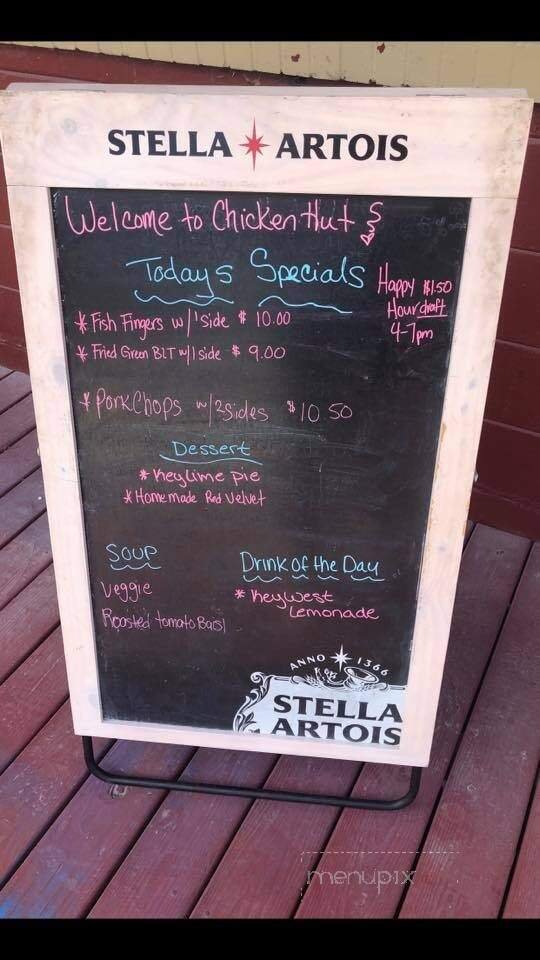 STELLA ARTOIS
Welcome to Chicken Hut
Todays Specials
Happy $1.50
Hour draft
4-7pm
* Fish Fingers w/1side $10.00
* Fried Green BLT w/1side $9.00
* PorkChops w/2sides $10.50
Dessert
* Keylime pie
* Homemade Red Velvet
Soup
Veggie
Roasted tomato Baisl
Drink of the Day
* Keywest
Lemonade
ANNO 1366
STELLA
ARTOIS
menupix